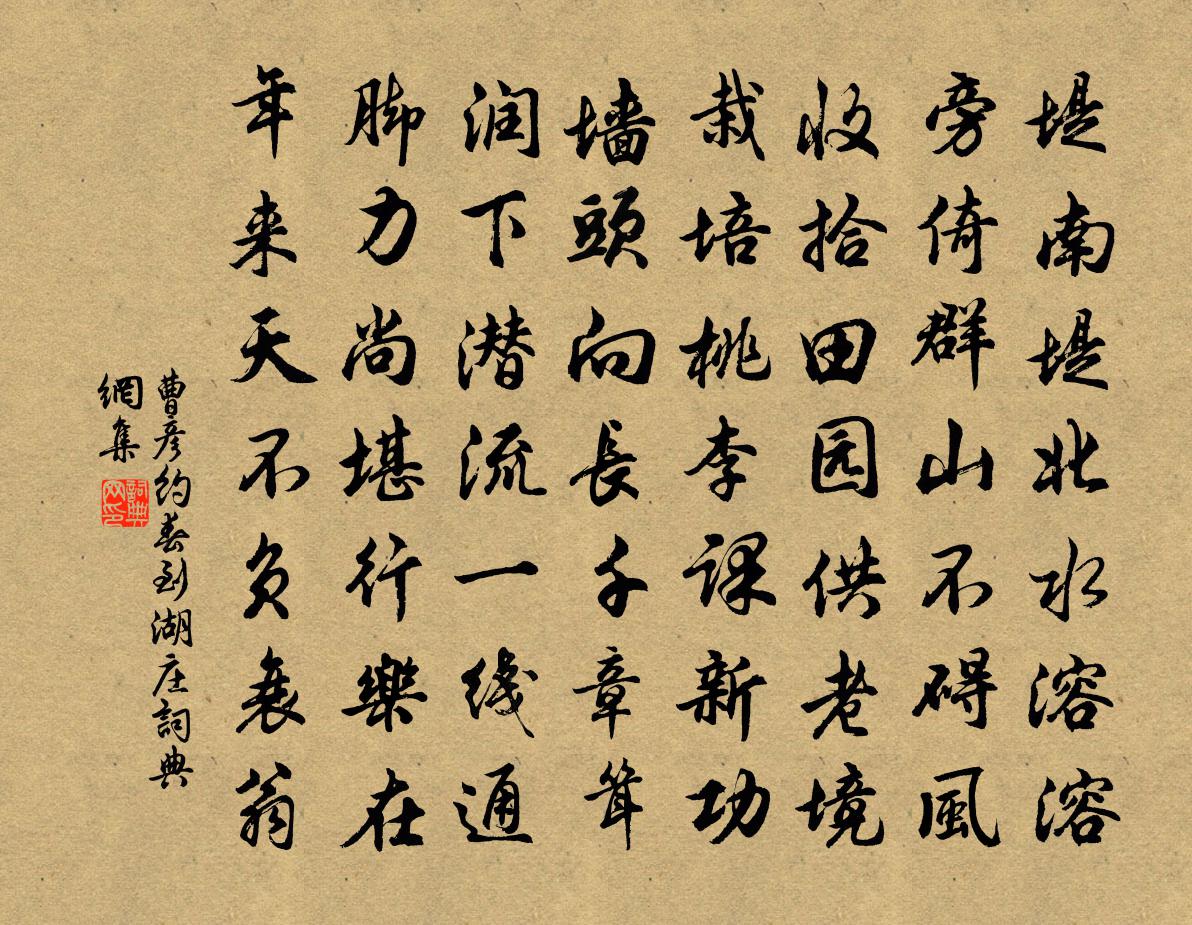 堤南堤北水溶溶
旁倚群山不碍風
收拾田园供老境
栽培桃李课新功
墙頭向長千章耸
润下潜流一线通
脚力尚堪行樂在
年来天不负衰翁
曹彦约春到湖庄詞典
網集
詞典网印